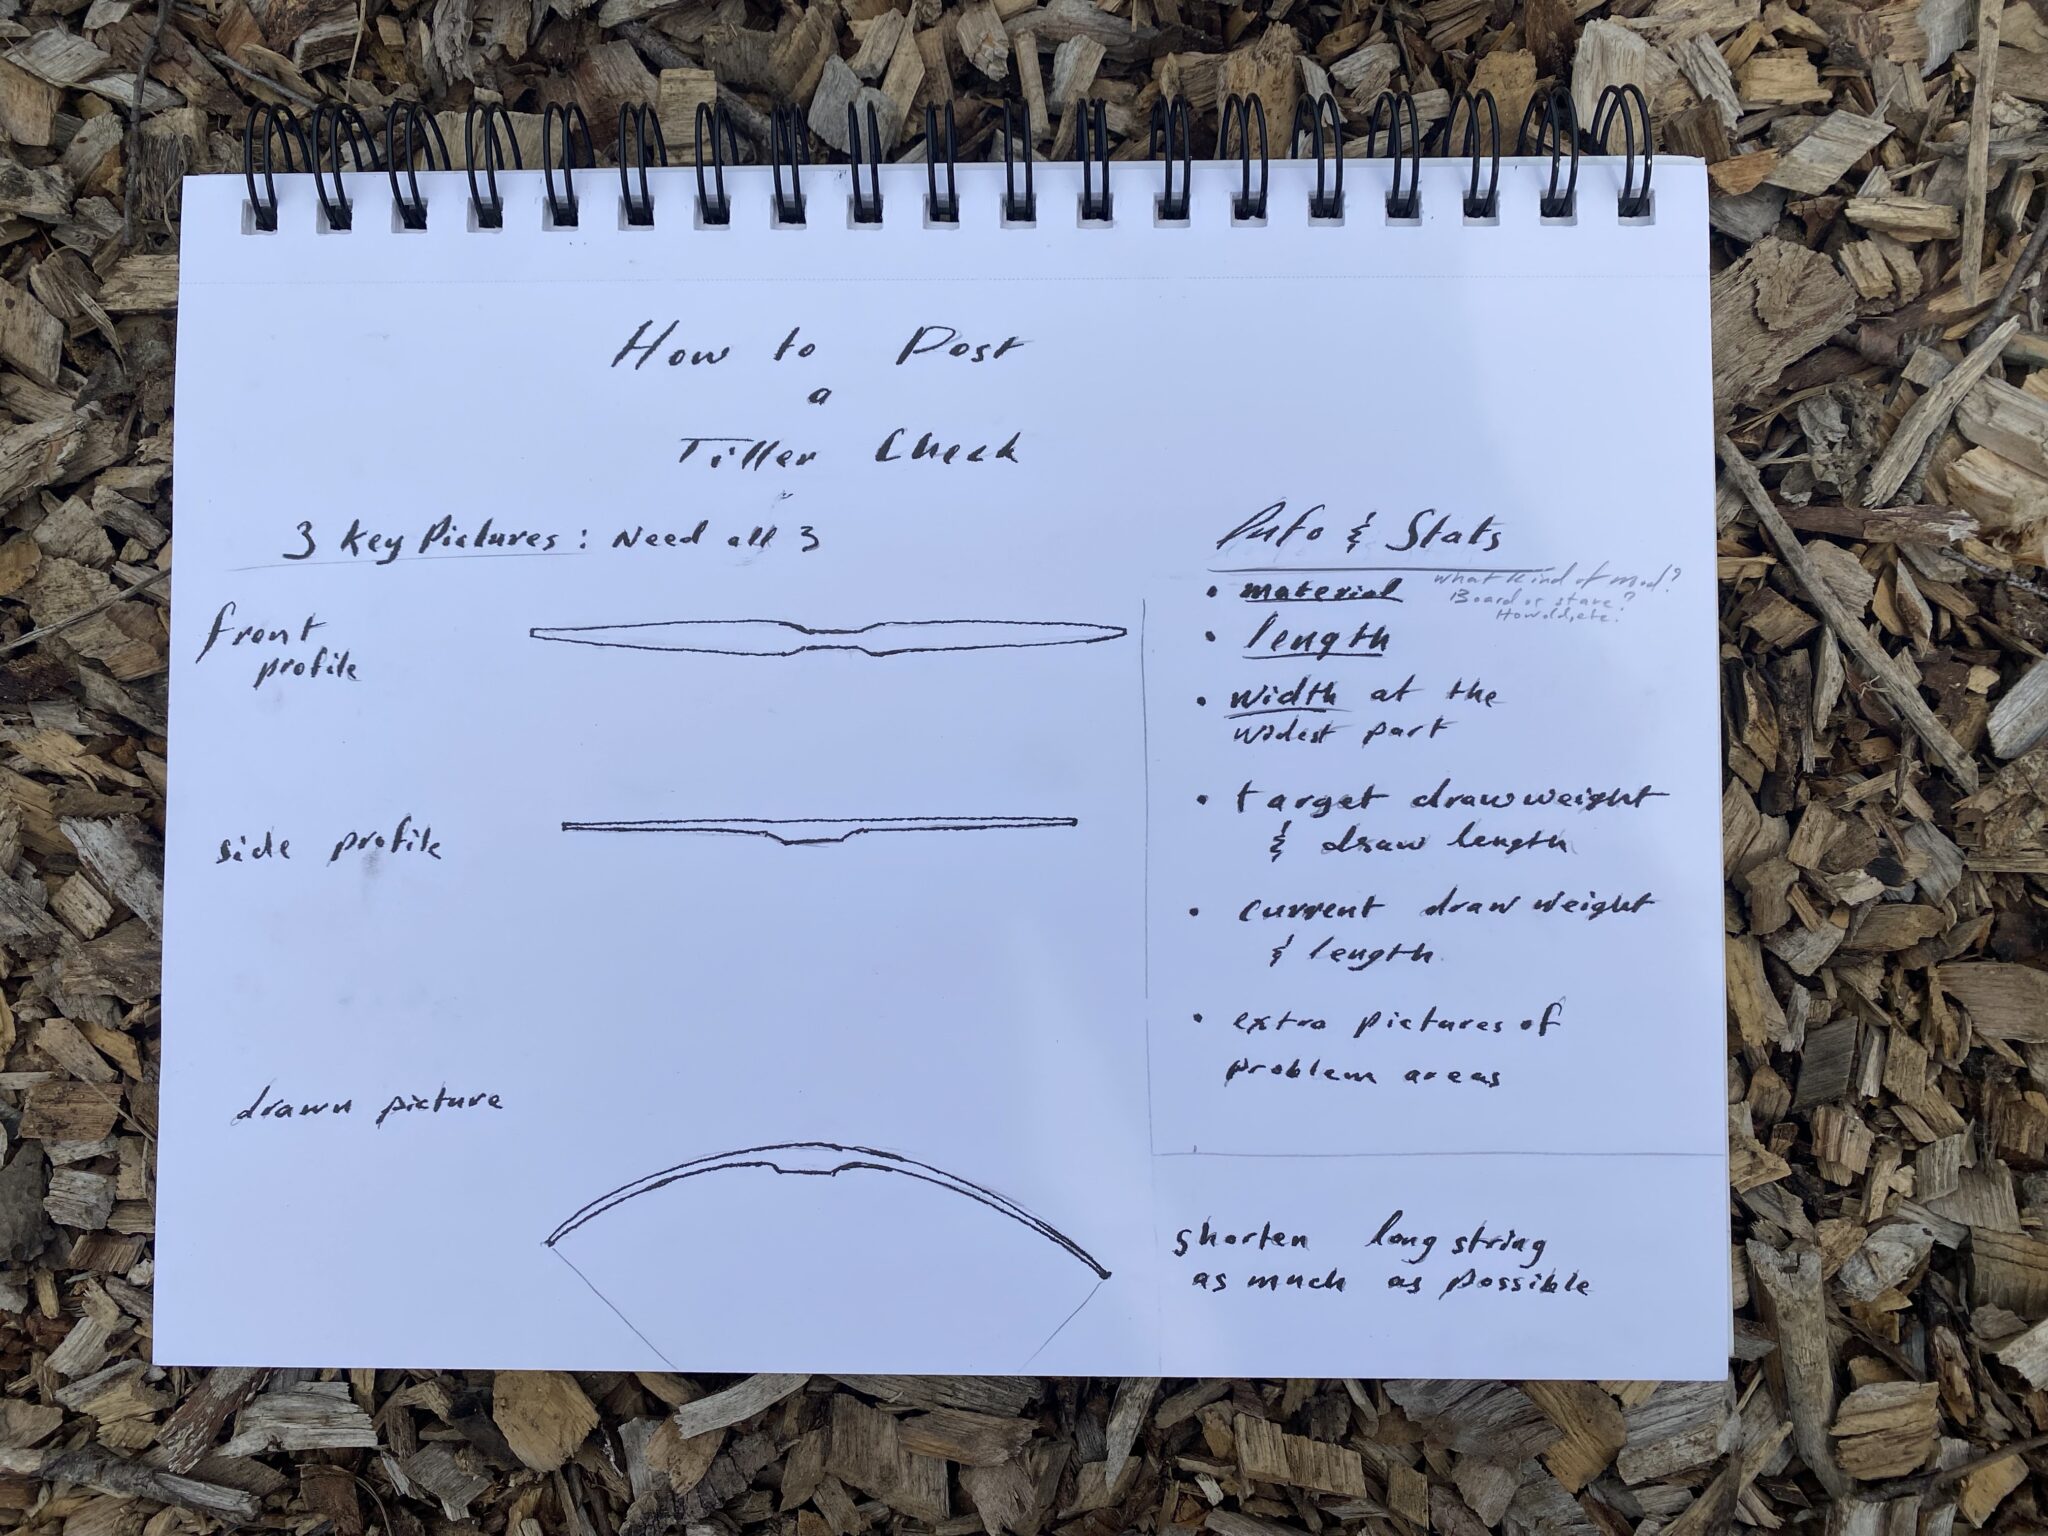 How to Post
a
Tiller Check
3 Key Pictures: Need all 3
front
profile
side profile
drawn picture
Info & Stats
• material
what kind of
Board or stave?
How old, etc.
• length
• width at the
widest part
• target draw weight
& draw length
• current draw weight
& length
• extra pictures of
problem areas
shorten long string
as much as possible